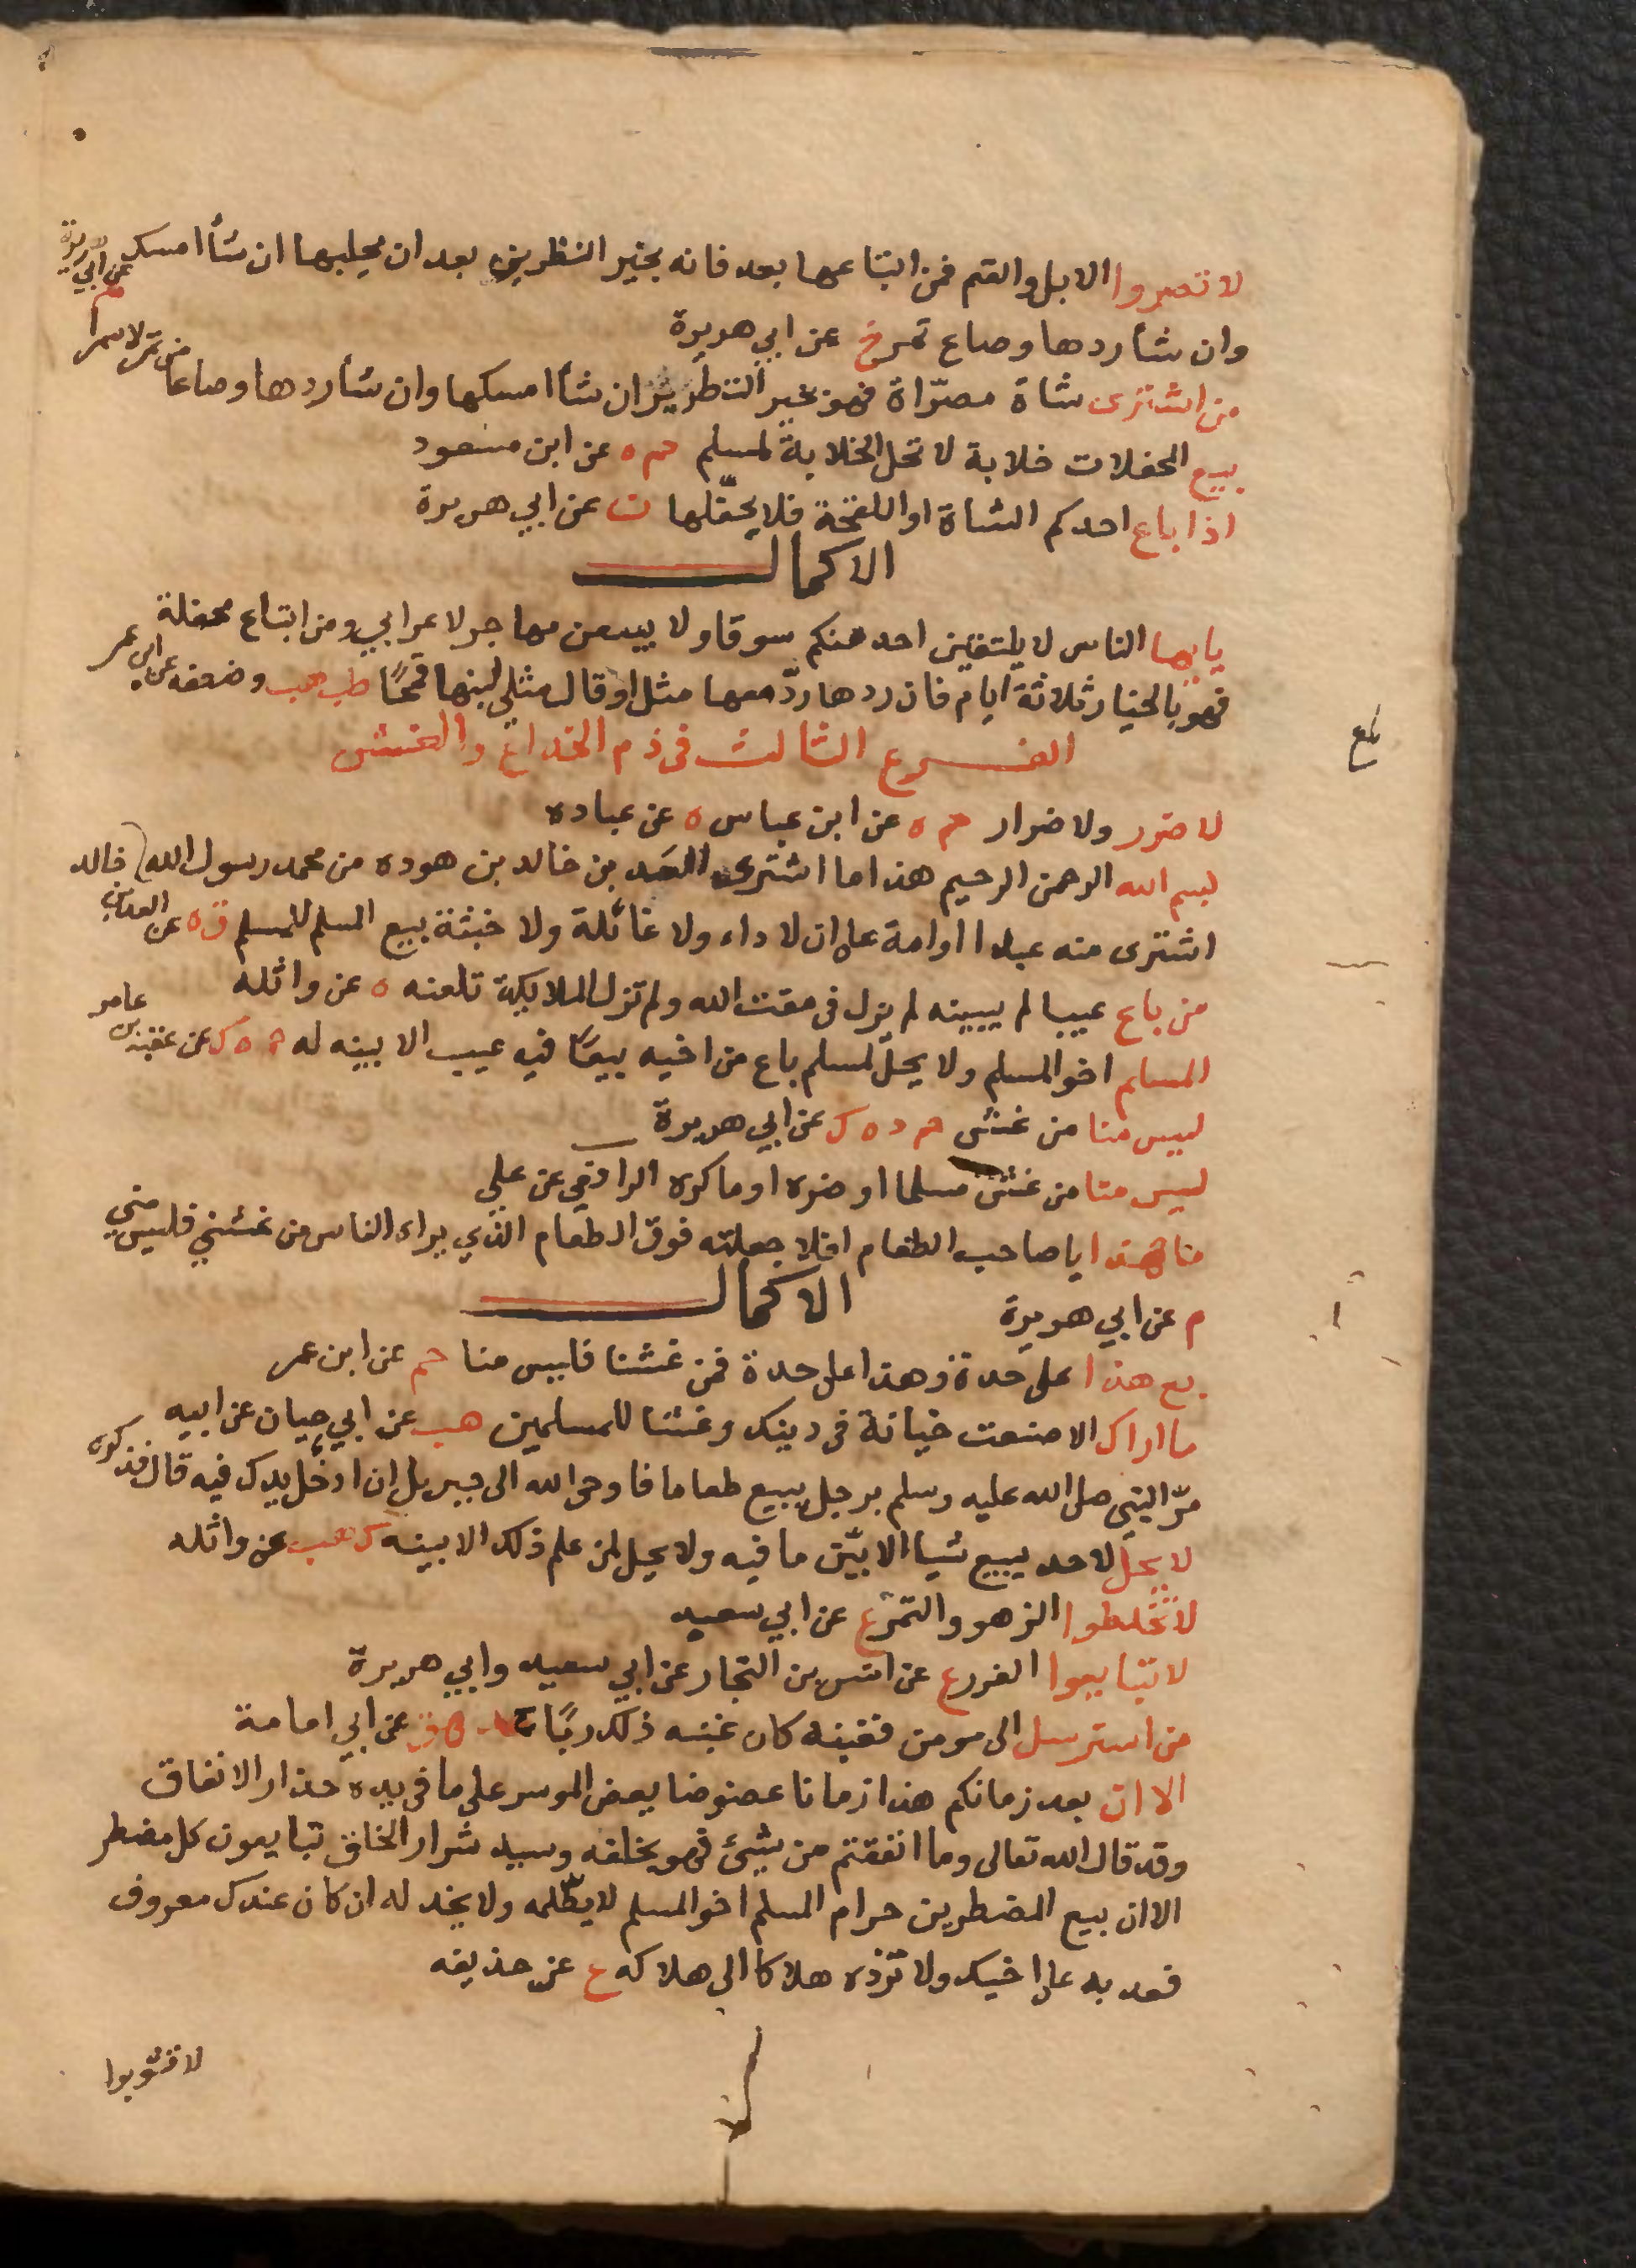 لا تصروا الابل والغنم فمن ابتاعها بعد فانه بخير النظرين بعد ان يحلبها ان شاأ امسك
وان شأ ردها وصاع تمر خ عن ابي هريرة
من اشترى شاة مصرّاة فهو بخير النظرين ان شأا امسكها وان شأ ردها وصاعا من تمر لا سمرا م عن ابي هريرة
بيع المحفلات خلابة لا تحل الخلابة لمسلم حم ه عن ابن مسعود
اذا باع احدكم الشاة او اللقحة فلا يحفّلها ن عن ابي هريرة
الاكمال
يا يها الناس لا يلتقين احد منكم سوقا ولا يبيعن مهاجر لاعرابي ومن ابتاع محفلة
فهو بالخيار ثلاثة ايام فان ردها ردّ معها مثل او قال مثلي لبنها قمحًا طب هب وضعفه عن ابن عمر
الفرع الثالث فى ذم الخداع والغش
لا ضرر ولا ضرار حم ه عن ابن عباس ه عن عباده
بسم الله الرحمن الرحيم هذا ما اشترى العد بن خالد بن هوده من محمد رسول الله
اشترى منه عبدا او امة على ان لا داء ولا غائلة ولا خبثة بيع المسلم للمسلم ت ه عن العدا بن خالد
من باع عيبا لم يبينه لم يزل فى مقت الله ولم تزل الملايكة تلعنه ه عن واثله
المسلم اخو المسلم ولا يحلّ لمسلم باع من اخيه بيعًا فيه عيب الا بينه له حم ه ك عن عقبة بن عامر
ليس منا من غش حم د ه ك عن ابي هريرة
ليس منا من غش مسلما او ضره او ماكره الرافعي عن علي
ما هذا يا صاحب الطعام افلا جعلته فوق الطعام الذي يراه الناس من غشني فليس مني
م عن ابي هريرة
الاكمال
بع هذا على حدة وهذا على حدة فمن غشنا فليس منا حم عن ابن عمر
ما اراك الا صنعت خيانة فى دينك وغشا للمسلمين هب عن ابي حيان عن ابيه
مرّ النبي صلى الله عليه وسلم برجل يبيع طعاما فاوحى الله الى جبريل ان ادخل يدك فيه قال فذكره
لا يحل لاحد يبيع شيا الا بيّن ما فيه ولا يحل لمن علم ذلك الا بينه ك هب عن واثله
لا تخلطوا الزهو والتمر ع عن ابي سعيد
لا تبايعوا الغرر ع عن انس بن النجار عن ابي سعيد وابي هريرة
من استرسل الى مومن فغبنه كان غبنه ذلك ربًا ق عن ابي امامة
الا ان بعد زمانكم هذا زمانا عضوضا يعض الموسر على ما فى يده حذار الانفاق
وقد قال الله تعالى وما انفقتم من شئ فهو يخلفه وسيد شرار الخلق تبايعون كل مضطر
الا ان بيع المضطرين حرام المسلم اخو المسلم لا يظلمه ولا يخذله ان كان عندك معروف
فعد به على اخيك ولا تزده هلاكا الى هلاكه ع عن حذيفه